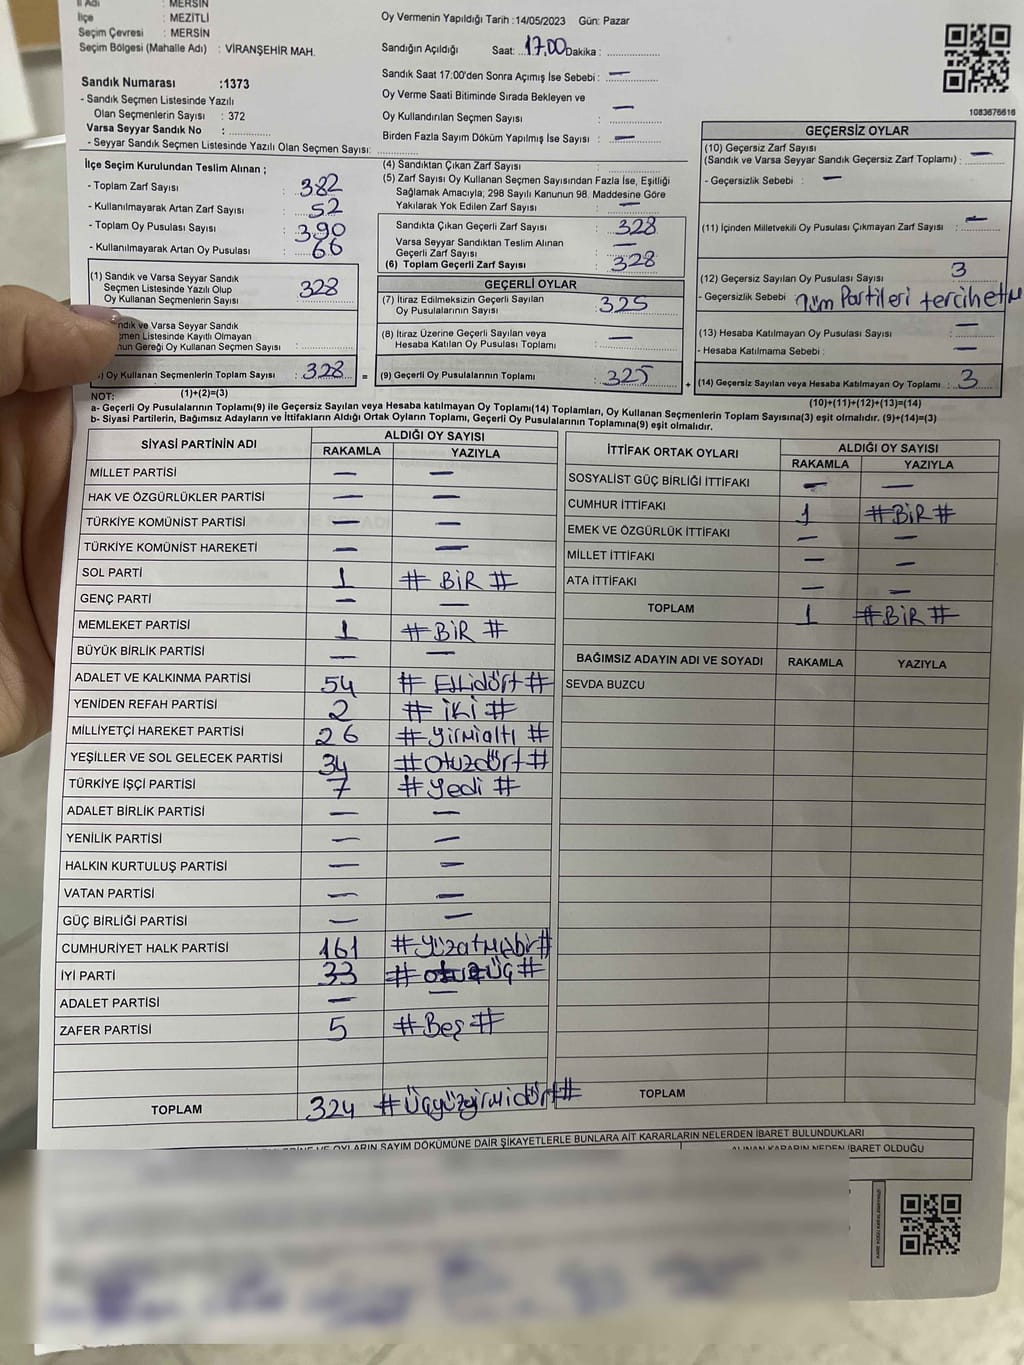 İl Adı : MERSİN
İlçe : MEZİTLİ
Seçim Çevresi : MERSİN
Seçim Bölgesi (Mahalle Adı) : VİRANŞEHİR MAH.
Sandık Numarası :1373
- Sandık Seçmen Listesinde Yazılı
Olan Seçmenlerin Sayısı : 372
Varsa Seyyar Sandık No :
- Seyyar Sandık Seçmen Listesinde Yazılı Olan Seçmen Sayısı:
Oy Vermenin Yapıldığı Tarih :14/05/2023 Gün: Pazar
Sandığın Açıldığı Saat: 17.00 Dakika :
Sandık Saat 17:00'den Sonra Açımış İse Sebebi : —
Oy Verme Saati Bitiminde Sırada Bekleyen ve
Oy Kullandırılan Seçmen Sayısı : —
Birden Fazla Sayım Döküm Yapılmış İse Sayısı : —
1083676616
İlçe Seçim Kurulundan Teslim Alınan ;
- Toplam Zarf Sayısı : 382
- Kullanılmayarak Artan Zarf Sayısı : 52
- Toplam Oy Pusulası Sayısı : 390
- Kullanılmayarak Artan Oy Pusulası : 66
(1) Sandık ve Varsa Seyyar Sandık
Seçmen Listesinde Yazılı Olup
Oy Kullanan Seçmenlerin Sayısı : 328
ndık ve Varsa Seyyar Sandık
men Listesinde Kayıtlı Olmayan
nun Gereği Oy Kullanan Seçmen Sayısı :
) Oy Kullanan Seçmenlerin Toplam Sayısı : 328
(1)+(2)=(3)
(4) Sandıktan Çıkan Zarf Sayısı :
(5) Zarf Sayısı Oy Kullanan Seçmen Sayısından Fazla İse, Eşitliği
Sağlamak Amacıyla; 298 Sayılı Kanunun 98. Maddesine Göre
Yakılarak Yok Edilen Zarf Sayısı : —
Sandıkta Çıkan Geçerli Zarf Sayısı : 328
Varsa Seyyar Sandıktan Teslim Alınan
Geçerli Zarf Sayısı : —
(6) Toplam Geçerli Zarf Sayısı : 328
GEÇERLİ OYLAR
(7) İtiraz Edilmeksizin Geçerli Sayılan
Oy Pusulalarının Sayısı : 325
(8) İtiraz Üzerine Geçerli Sayılan veya
Hesaba Katılan Oy Pusulası Toplamı : —
= (9) Geçerli Oy Pusulalarının Toplamı : 325
GEÇERSİZ OYLAR
(10) Geçersiz Zarf Sayısı
(Sandık ve Varsa Seyyar Sandık Geçersiz Zarf Toplamı) : —
- Geçersizlik Sebebi : —
(11) İçinden Milletvekili Oy Pusulası Çıkmayan Zarf Sayısı : —
(12) Geçersiz Sayılan Oy Pusulası Sayısı : 3
- Geçersizlik Sebebi : Tüm Partileri tercihetm
(13) Hesaba Katılmayan Oy Pusulası Sayısı : —
- Hesaba Katılmama Sebebi : —
+ (14) Geçersiz Sayılan veya Hesaba Katılmayan Oy Toplamı : 3
(10)+(11)+(12)+(13)=(14)
NOT:
a- Geçerli Oy Pusulalarının Toplamı(9) ile Geçersiz Sayılan veya Hesaba katılmayan Oy Toplamı(14) Toplamları, Oy Kullanan Seçmenlerin Toplam Sayısına(3) eşit olmalıdır. (9)+(14)=(3)
b- Siyasi Partilerin, Bağımsız Adayların ve İttifakların Aldığı Ortak Oyların Toplamı, Geçerli Oy Pusulalarının Toplamına(9) eşit olmalıdır.
SİYASİ PARTİNİN ADI ALDIĞI OY SAYISI
RAKAMLA YAZIYLA
MİLLET PARTİSİ — —
HAK VE ÖZGÜRLÜKLER PARTİSİ — —
TÜRKİYE KOMÜNİST PARTİSİ — —
TÜRKİYE KOMÜNİST HAREKETİ — —
SOL PARTİ 1 # BİR #
GENÇ PARTİ — —
MEMLEKET PARTİSİ 1 # BİR #
BÜYÜK BİRLİK PARTİSİ — —
ADALET VE KALKINMA PARTİSİ 54 # Ellidört #
YENİDEN REFAH PARTİSİ 2 # İKİ #
MİLLİYETÇİ HAREKET PARTİSİ 26 # Yirmialtı #
YEŞİLLER VE SOL GELECEK PARTİSİ 34 # Otuzdört #
TÜRKİYE İŞÇİ PARTİSİ 7 # Yedi #
ADALET BİRLİK PARTİSİ — —
YENİLİK PARTİSİ — —
HALKIN KURTULUŞ PARTİSİ — —
VATAN PARTİSİ — —
GÜÇ BİRLİĞİ PARTİSİ — —
CUMHURİYET HALK PARTİSİ 161 # Yüzatmışbir #
İYİ PARTİ 33 # otuzüç #
ADALET PARTİSİ — —
ZAFER PARTİSİ 5 # Beş #
TOPLAM 324 # Üçyüzyirmidört #
İTTİFAK ORTAK OYLARI ALDIĞI OY SAYISI
RAKAMLA YAZIYLA
SOSYALİST GÜÇ BİRLİĞİ İTTİFAKI — —
CUMHUR İTTİFAKI 1 # BİR #
EMEK VE ÖZGÜRLÜK İTTİFAKI — —
MİLLET İTTİFAKI — —
ATA İTTİFAKI — —
TOPLAM 1 # BİR #
BAĞIMSIZ ADAYIN ADI VE SOYADI RAKAMLA YAZIYLA
SEVDA BUZCU
TOPLAM
OYLARIN SAYIM DÖKÜMÜNE DAİR ŞİKAYETLERLE BUNLARA AİT KARARLARIN NELERDEN İBARET BULUNDUKLARI
ALINAN KARARIN NEDEN İBARET OLDUĞU